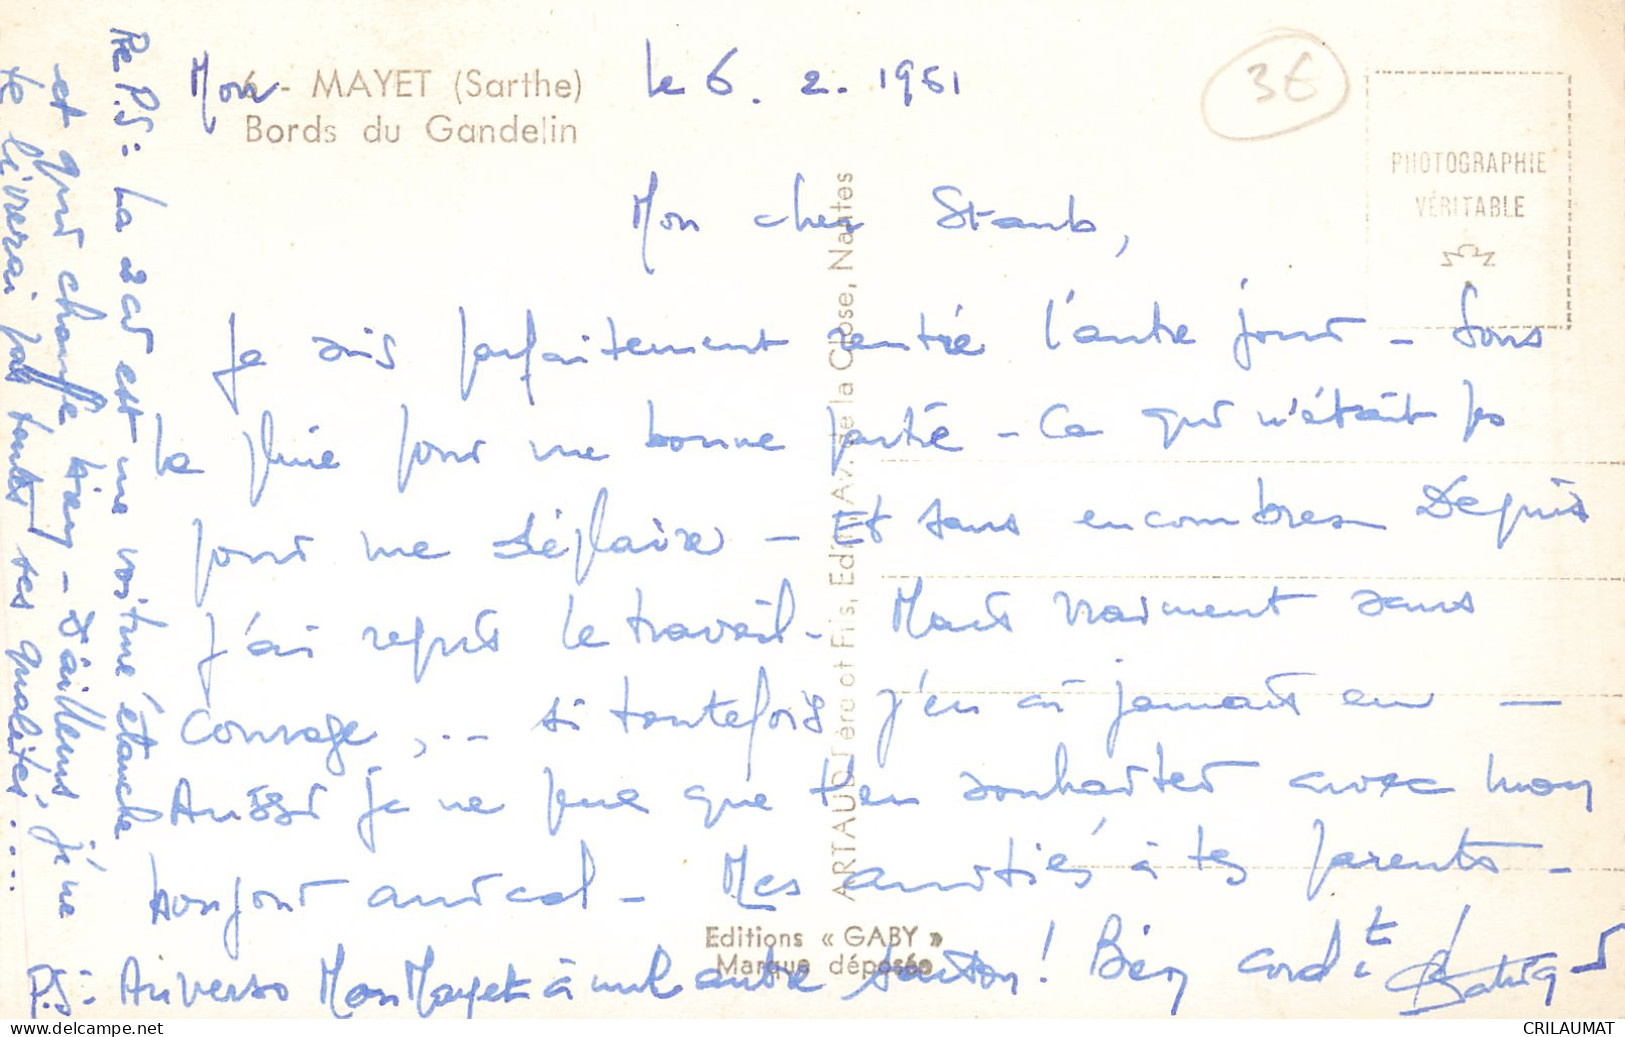 Mon 6 - MAYET (Sarthe)
Bords du Gandelin
le 6. 2. 1951
3€
PHOTOGRAPHIE
VÉRITABLE
Mon cher Staub,
Je suis parfaitement rentré l'autre jour - Sous
la pluie pour une bonne partie - Ce qui n'était pas
pour me déplaire - Et sans encombres Depuis
j'ai repris le travail - Mais vraiment sans
courage, ... si toutefois j'en ai jamais eu -
Aussi je ne peux que t'en souhaiter avec mon
bonjour amical - Mes amitiés à tes parents -
Bien cord t
P.S: Au verso Mon Mayet à une autre saison!
Re P.S: La 2cv est une voiture étanche
et qui chauffe bien - D'ailleurs, j'ne
te livrerai pas toutes ses qualités ....
ARTAUD Père et Fils, Edit., Av. de la Close, Nantes
Editions « GABY »
Marque déposée
CRILAUMAT